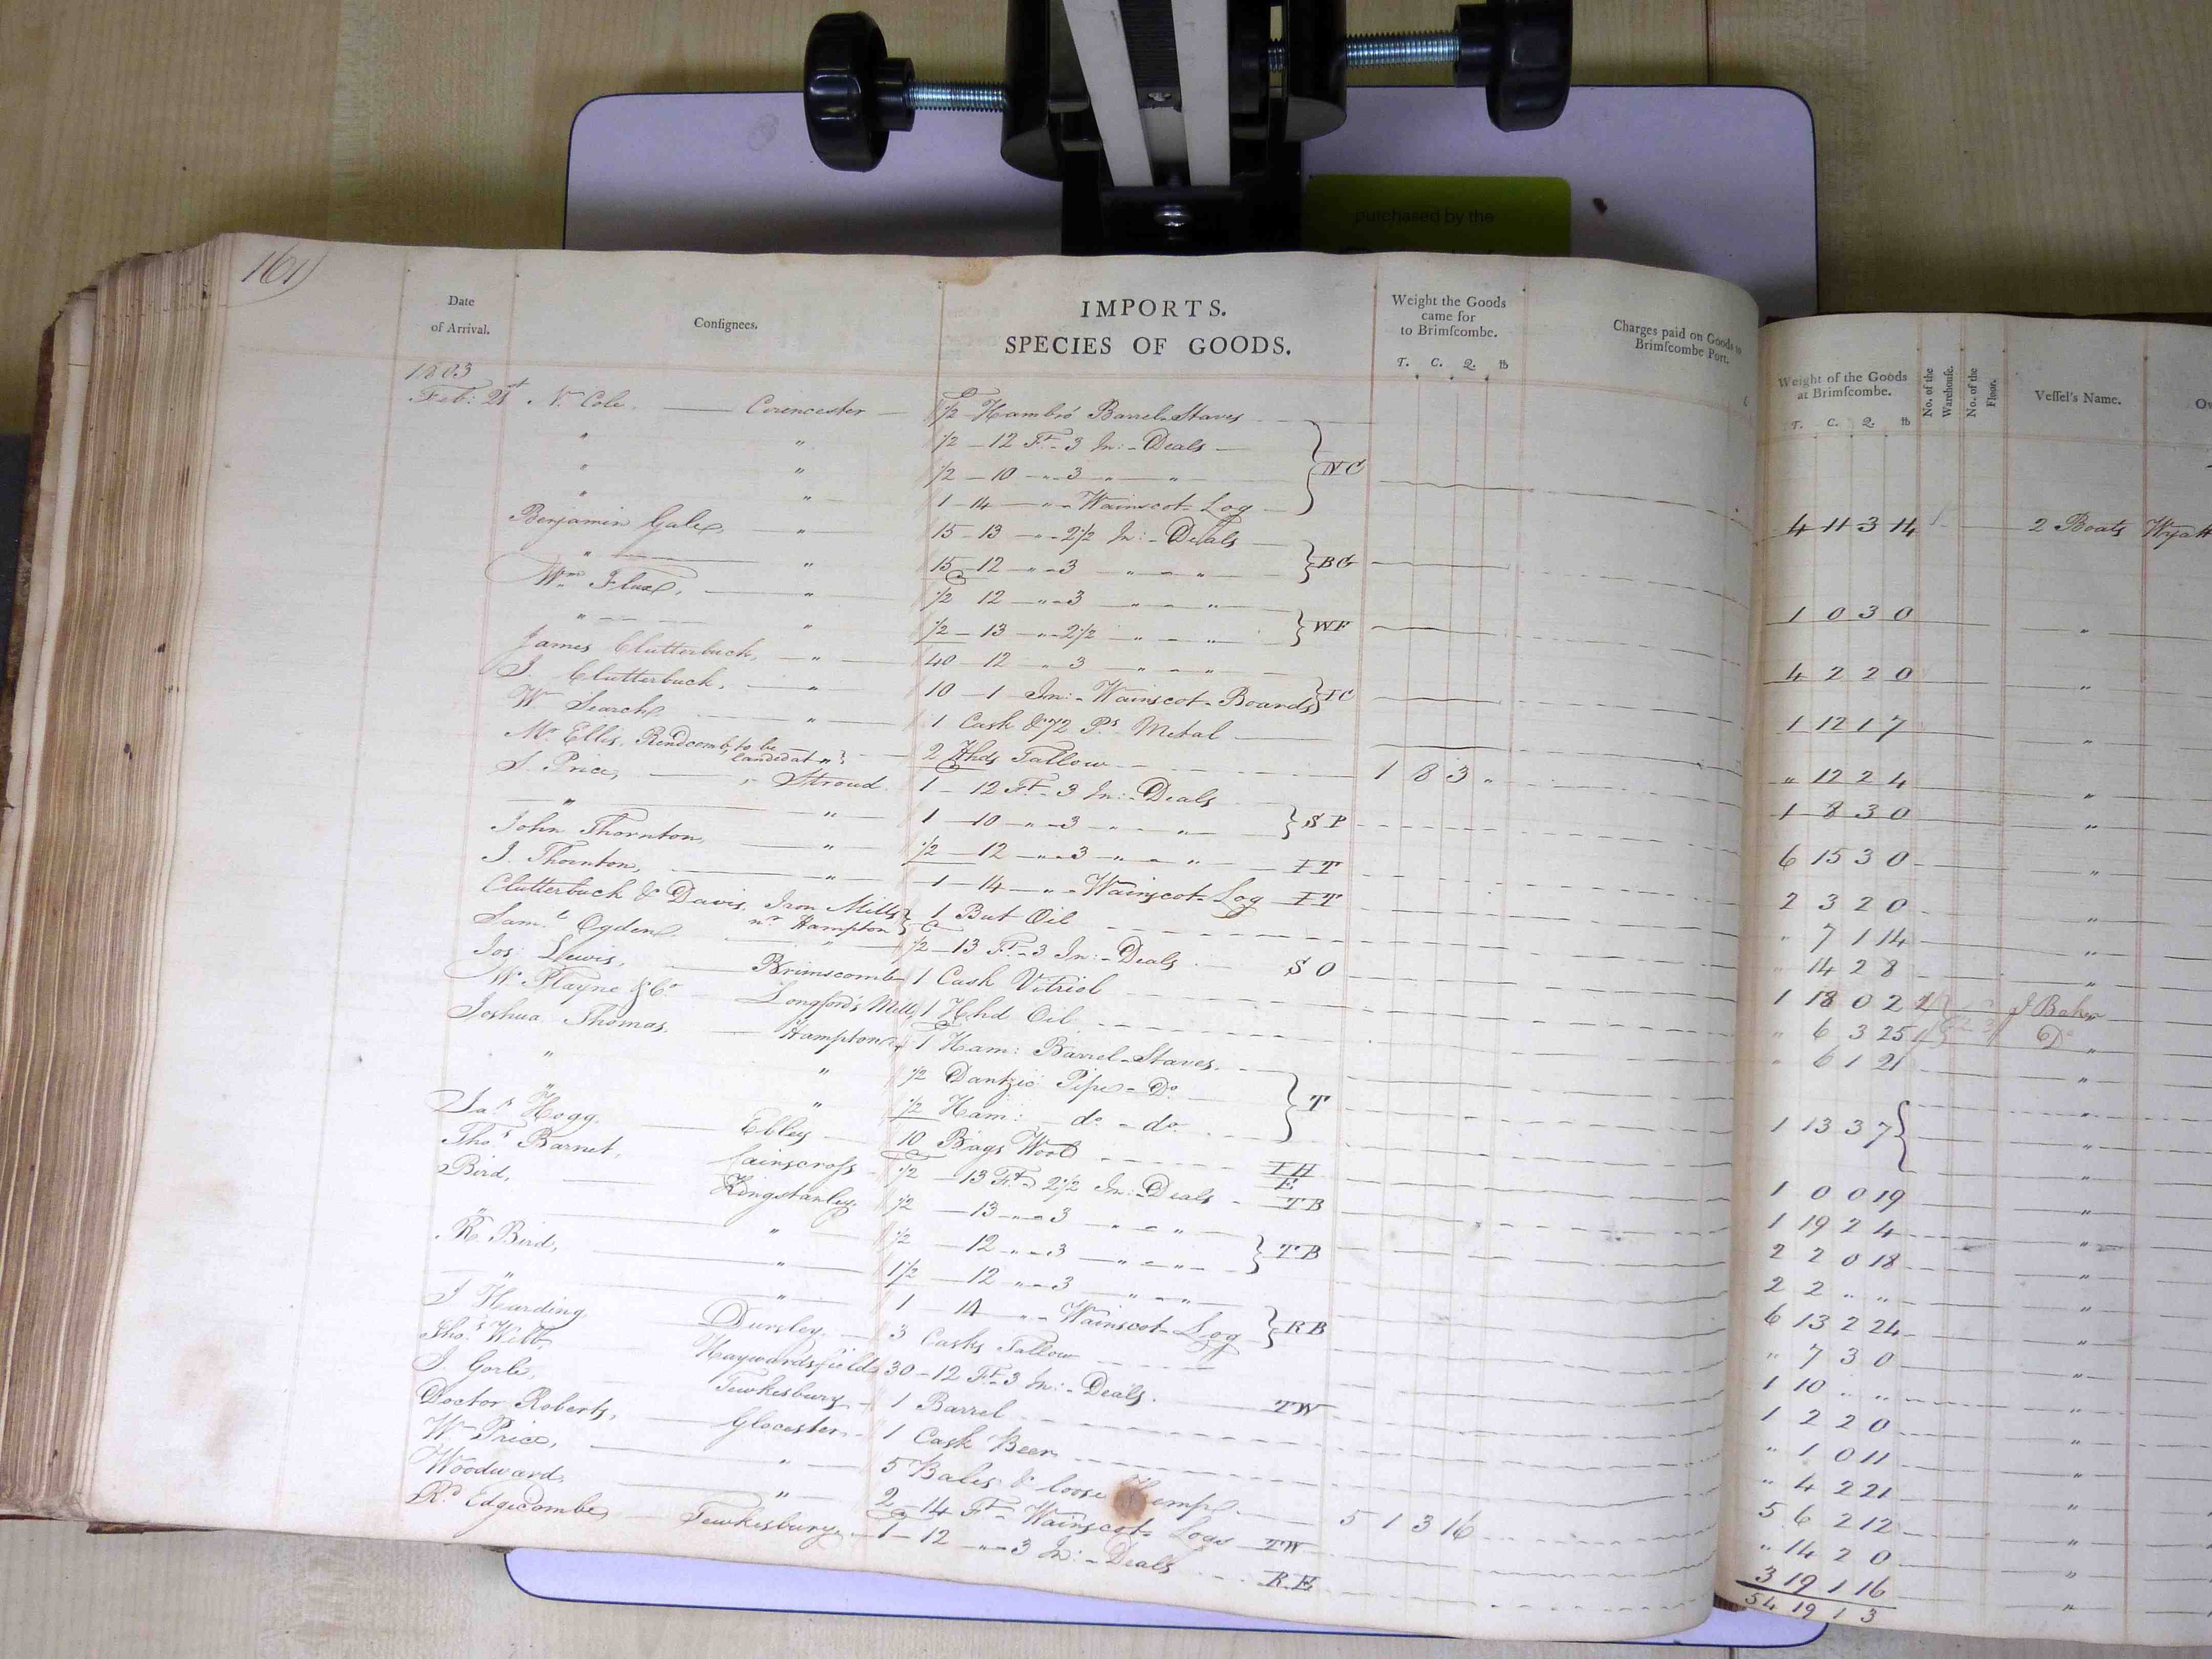 purchased by the
161
Date
of Arrival.
Consignees.
IMPORTS.
SPECIES OF GOODS.
Weight the Goods
came for
to Brimscombe.
T. C. Q. lb
Charges paid on Goods to
Brimscombe Port.
Weight of the Goods
at Brimscombe.
T. C. Q. lb
No. of the Warehouse.
No. of the Floor.
Vessel's Name.
1803
Feb: 21st N Cole, Cirencester 1/2 Hambro' Barrel Staves
" " 1/2 - 12 Ft - 3 In: - Deals
" " 1/2 - 10 " - 3 " " NC
" " 1 - 14 " - Wainscot Log 4 11 3 14 2 Boats Wyatt
Benjamin Gale, " 15 - 13 " - 2 1/2 In: - Deals
" " 15 - 12 " - 3 " " BG 1 0 3 0 "
Wm Flux, " 1/2 12 " - 3 " "
" " 1/2 - 13 " - 2 1/2 " " WF 4 2 2 0 "
James Clutterbuck, " 40 12 " 3 " "
J. Clutterbuck, " 10 - 1 In: - Wainscot - Boards IC 1 12 1 7 "
W Search " 1 Cask & 72 Ps Metal " 12 2 4 "
Mr Ellis, Rendcomb, to be landed at " 2 Hhds Tallow 1 8 3 " 1 8 3 0 "
S. Price, " Stroud. 1 - 12 Ft - 3 In: - Deals
" " 1 - 10 " - 3 " " SP 6 15 3 0 "
John Thornton, " 1/2 - 12 " - 3 " " IT 2 3 2 0 "
J. Thornton, " 1 - 14 " - Wainscot - Log IT " 7 1 14 "
Clutterbuck & Davis, Iron Mills nr Hampton 1 But Oil " 14 2 8 "
Saml Ogden " 1/2 - 13 Ft - 3 In: - Deals SO 1 18 0 2 J Baker "
Jos: Lewis, Brimscomb 1 Cask Vitriol " 6 3 25 Do "
W Playne & Co Longford's Mill, 1 Hhd Oil " 6 1 21 "
Joshua Thomas, Hampton 1 Ham: Barrel - Staves.
" " 1/2 Dantzic Pipe - Do
" " 1/2 Ham: do - do T 1 13 3 7 "
Jas Hogg Ebley 10 Bags Wool IH E 1 0 0 19 "
Thos Barnet, Cainscross 1/2 - 13 Ft - 2 1/2 In: - Deals TB 1 19 2 4 "
Bird, Kingstanley 1/2 - 13 " - 3 " " 2 2 0 18 "
" " 1/2 - 12 " - 3 " " TB 2 2 " " "
R Bird, " 1 1/2 - 12 " - 3 " " 6 13 2 24 "
" " 1 14 " - Wainscot - Log RB " 7 3 0 "
J Harding Dursley 3 Casks Tallow 1 10 " " "
Thos Webb, Haywardsfield 30 - 12 Ft - 3 In: - Deals. TW 1 2 2 0 "
J. Gorle, Tewkesbury 1 Barrel " 1 0 11 "
Doctor Roberts, Glocester 1 Cask Beer " 4 2 21 "
W Price, " 5 Bales & loose Hemp 5 1 3 16 5 6 2 12 "
Woodward " 2 14 Ft - Wainscot - Logs IW " 14 2 0 "
Rd Edgecombe, Tewkesbury 1 - 12 " - 3 In: - Deals RE 3 19 1 16 "
54 19 1 3